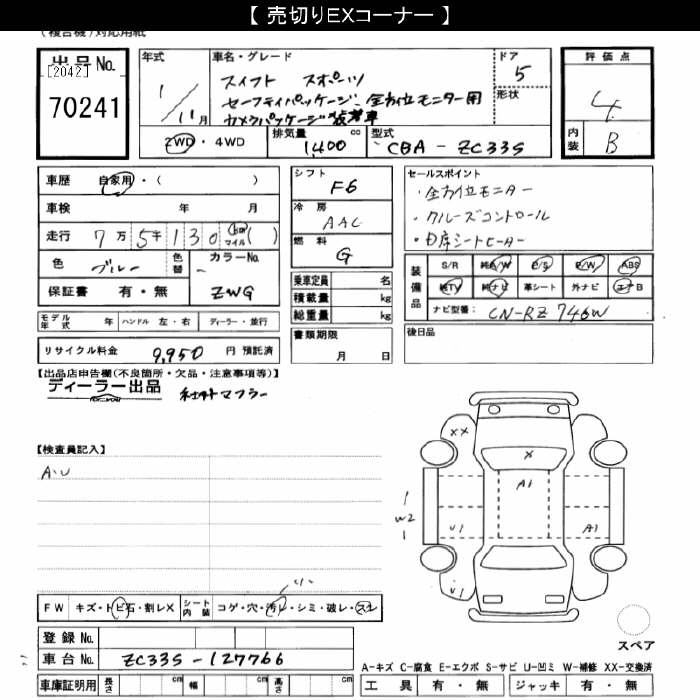 【 売切りEXコーナー 】
(複合機)対応用紙
出品No.
[2042]
70241
年式
1/11月
車名・グレード
スイフト スポーツ
セーフティパッケージ・全方位モニター用
カメラパッケージ装着車
ドア
5
形状
評価点
4
内装
B
2WD・4WD
排気量 1,400 cc
型式 CBA - ZC33S
車歴 自家用・( )
車検 年 月
走行 7万5千130 km マイル( )
色 ブルー 色替
カラーNo. ZWG
保証書 有・無
シフト F6
冷房 AAC
燃料 G
乗車定員 名
積載量 kg
総重量 kg
セールスポイント
・全方位モニター
・クルーズコントロール
・D席シートヒーター
装備品
S/R 純A/W P/S P/W ABS
純TV 純ナビ 革シート 外ナビ エアB
ナビ型番: CN-RZ746W
モデル年式 年 ハンドル 左・右 ディーラー・並行
書類期限 月 日
後日品
リサイクル料金 9,950 円 預託済
【出品店申告欄(不良箇所・欠品・注意事項等)】
ディーラー出品
社外マフラー
【検査員記入】
A・U
XX
X
A1
1
W2
1
U1
A1
U1
FW キズ・トビ石・割レX
シート内装 コゲ・穴・汚レ・シミ・破レ・スレ
スペア
登録No.
車台No. ZC33S-127766
A-キズ C-腐食 E-エクボ S-サビ U-凹ミ W-補修 XX-交換済
車庫証明用 長さ cm 幅 cm 高さ cm
工具 有・無 ジャッキ 有・無